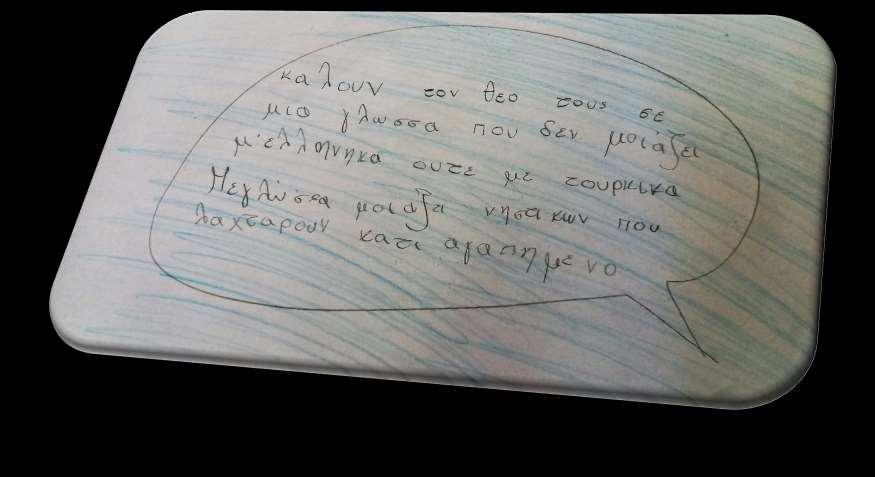 καλουν τον θεο τους σε
μια γλωσσα που δεν μοιάζει
μ'ελληνηκα ουτε με τουρκικα
Μεγλώσσα μοιάζει νησтικων που
λαχταρουν κατι αγαπημενο